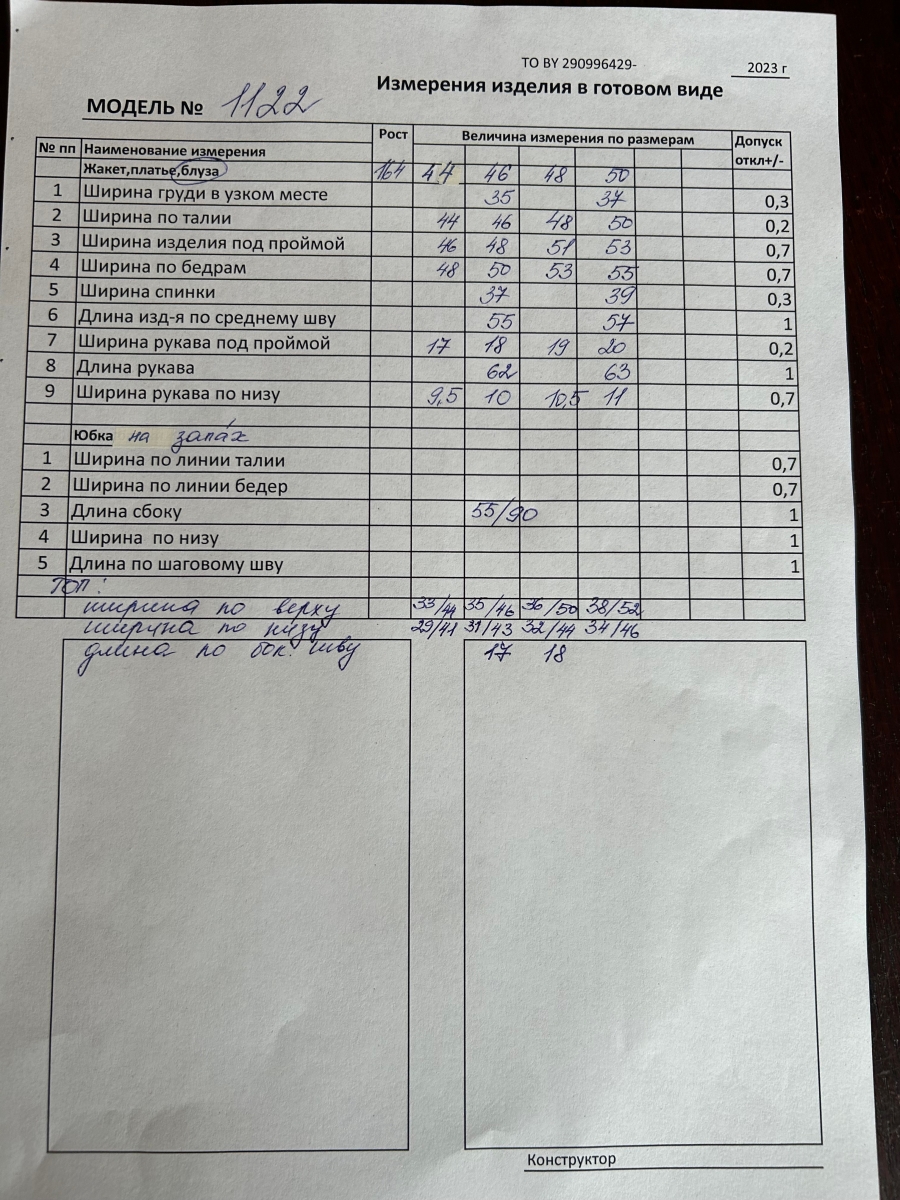 ТО BY 290996429-
2023 г
Измерения изделия в готовом виде
МОДЕЛЬ № 1122
№ пп Наименование измерения Рост Величина измерения по размерам Допуск откл+/-
Жакет,платье,блуза 164 44 46 48 50
1 Ширина груди в узком месте 35 37 0,3
2 Ширина по талии 44 46 48 50 0,2
3 Ширина изделия под проймой 46 48 51 53 0,7
4 Ширина по бедрам 48 50 53 55 0,7
5 Ширина спинки 37 39 0,3
6 Длина изд-я по среднему шву 55 57 1
7 Ширина рукава под проймой 17 18 19 20 0,2
8 Длина рукава 62 63 1
9 Ширина рукава по низу 9,5 10 10,5 11 0,7
Юбка на запах
1 Ширина по линии талии 0,7
2 Ширина по линии бедер 0,7
3 Длина сбоку 55/90 1
4 Ширина по низу 1
5 Длина по шаговому шву 1
Топ:
ширина по верху 33/44 35/46 36/50 38/52
ширина по низу 29/41 31/43 32/44 34/46
длина по бок. шву 17 18
Конструктор